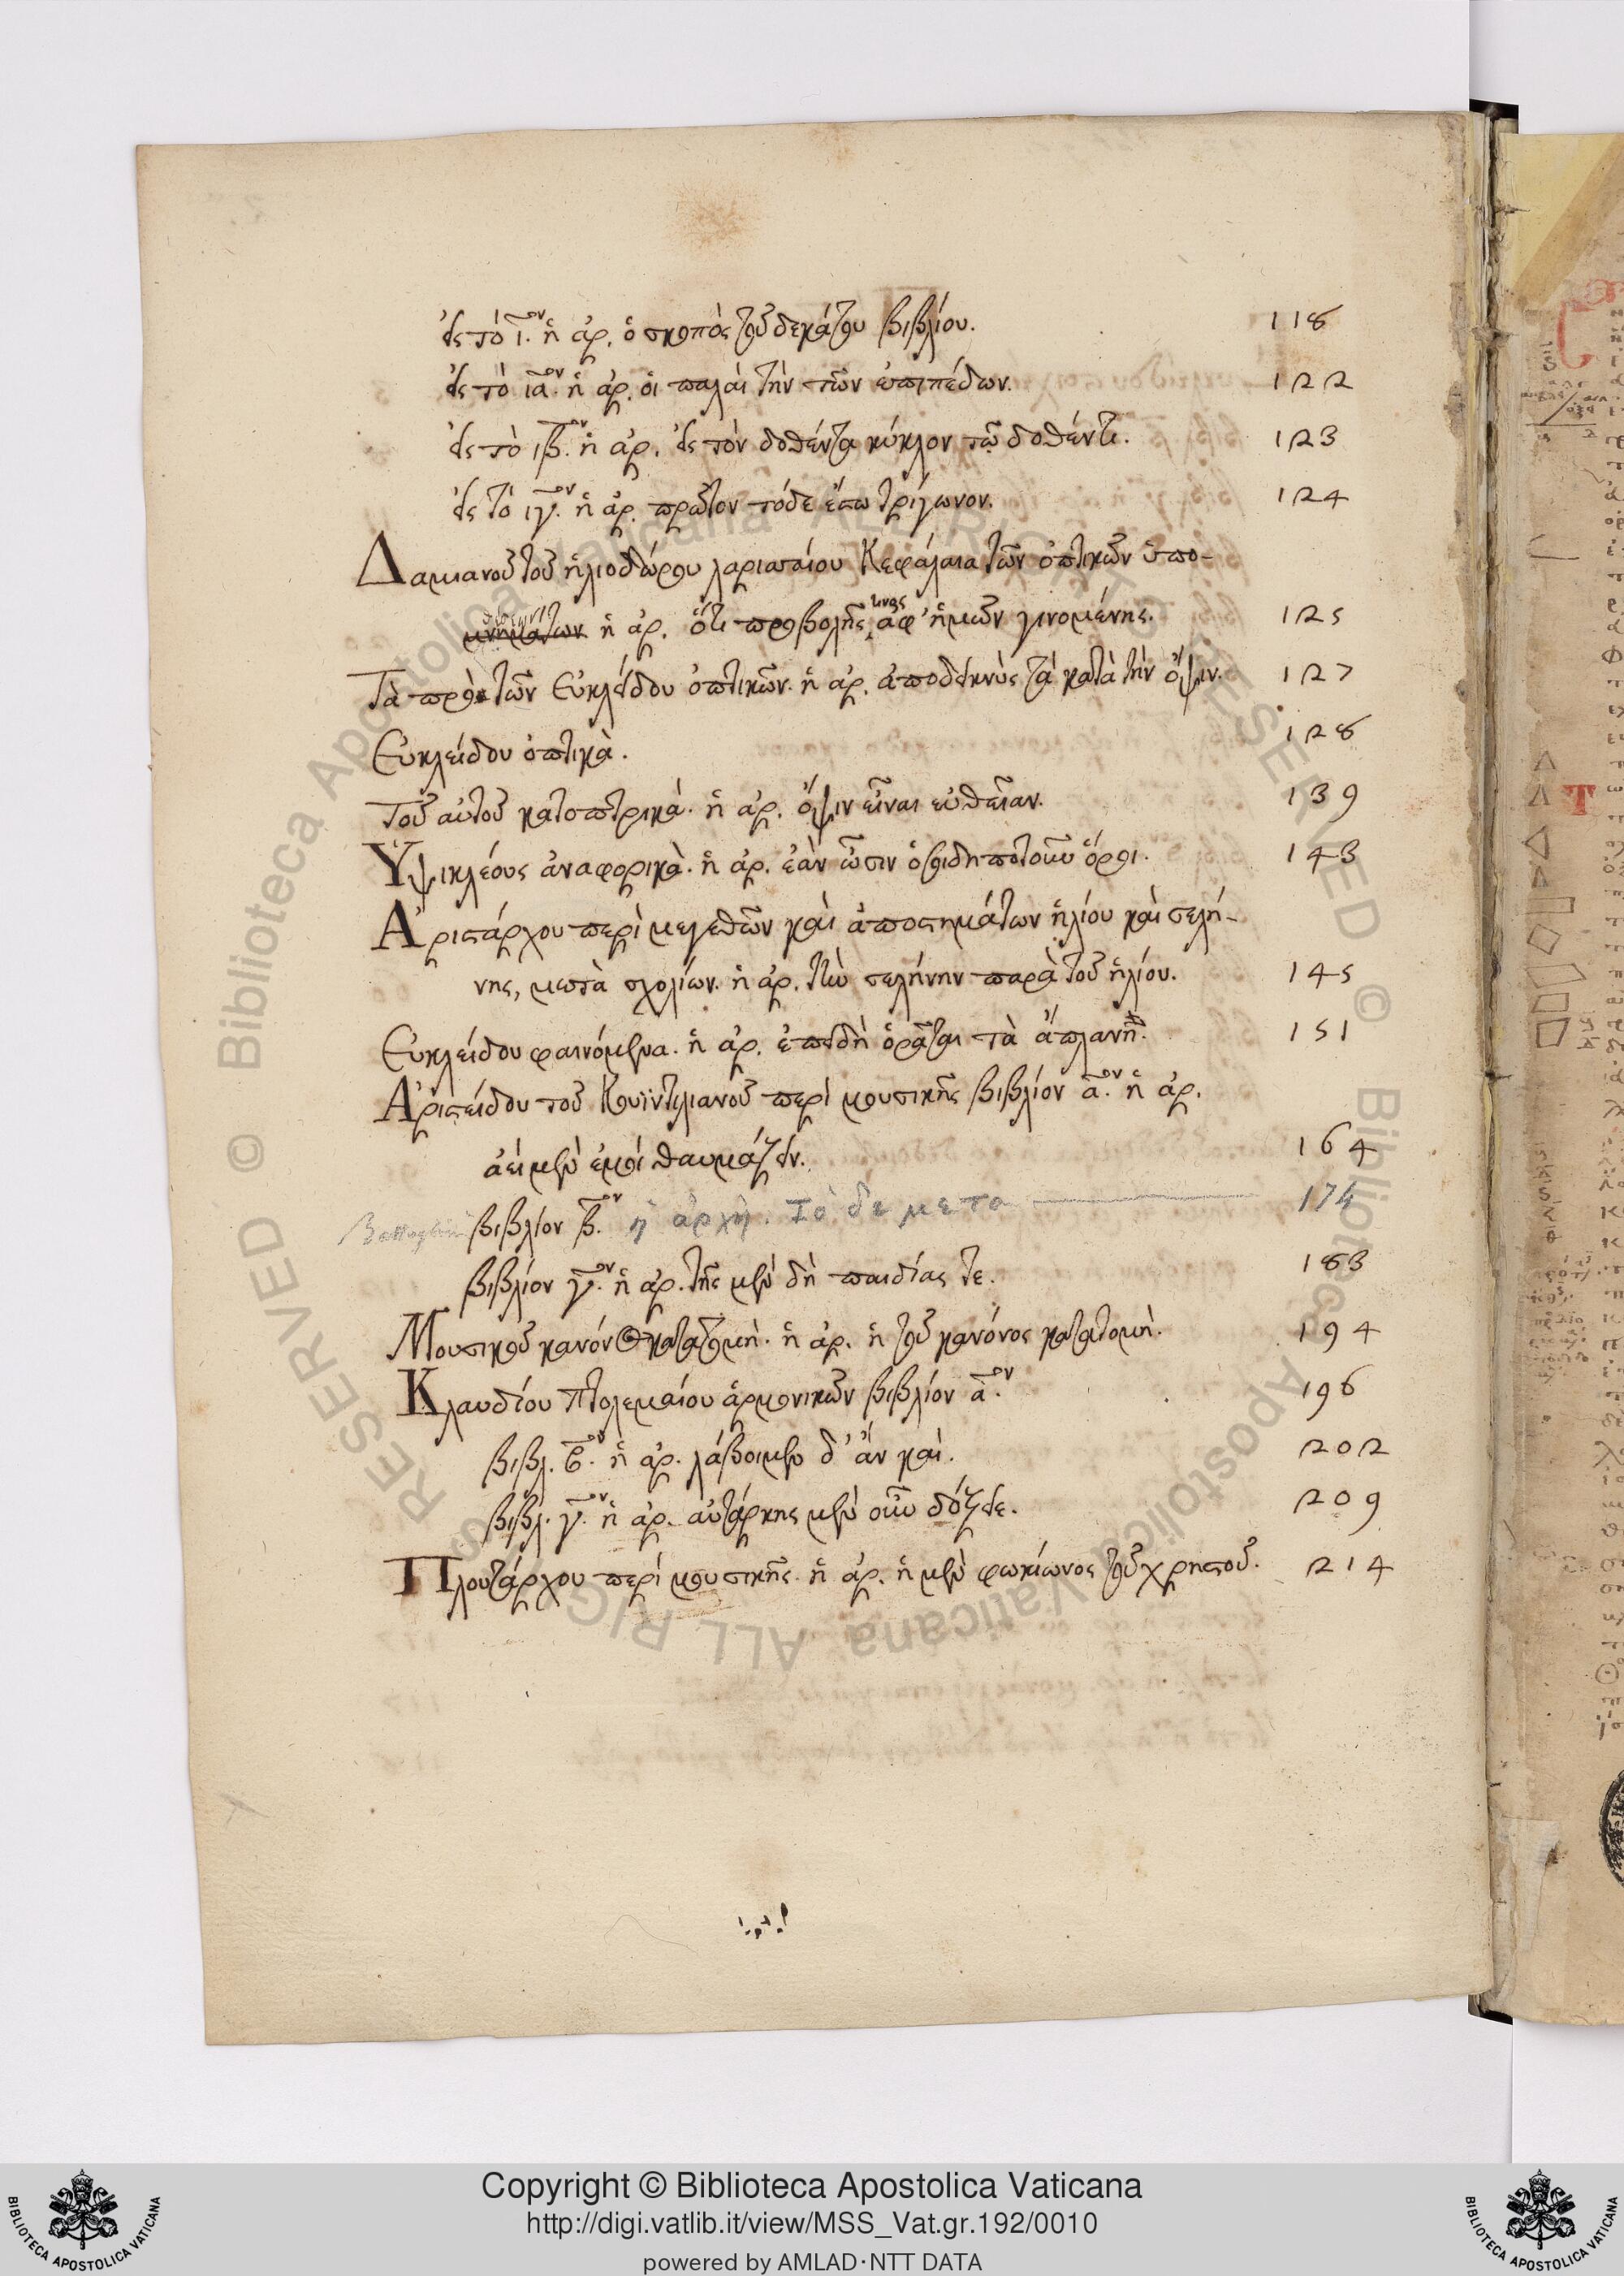 εἰς τὸ ι.ον ἡ ἀρ. ὁ σκοπὸς τοῦ δεκάτου βιβλίου. 118
εἰς τὸ ια.ον ἡ ἀρ. οἱ παλαὶ τὴν τῶν ἐπιπέδων. 122
εἰς τὸ ιβ.ον ἡ ἀρ. εἰς τὸν δοθέντα κύκλον τῷ δοθέντι. 123
εἰς τὸ ιγ.ον ἡ ἀρ. πρῶτον τόδε ἔστω τρίγωνον. 124
Δαμιανοῦ τοῦ ἡλιοδώρου λαρισσαίου Κεφάλαια τῶν ὀπτικῶν ὑπο-
μνημάτων ἡ ἀρ. ὅτι προβολῆς τινος ἀφ' ἡμῶν γινομένης. 125
Τὰ πρὸ τῶν Εὐκλείδου ὀπτικῶν. ἡ ἀρ. ἀποδεικνὺς τὰ κατὰ τὴν ὄψιν. 127
Εὐκλείδου ὀπτικὰ. 128
Τοῦ αὐτοῦ κατοπτρικὰ. ἡ ἀρ. ὄψιν εἶναι εὐθεῖαν. 139
Ὑψικλέους ἀναφορικὰ. ἡ ἀρ. ἐὰν ὦσιν ὁσοιδηποτοῦν ὅροι. 143
Ἀριστάρχου περὶ μεγεθῶν καὶ ἀποστημάτων ἡλίου καὶ σελή-
νης, μετὰ σχολίων. ἡ ἀρ. τὴν σελήνην παρὰ τοῦ ἡλίου. 145
Εὐκλείδου φαινόμενα. ἡ ἀρ. ἐπειδὴ ὁρᾶται τὰ ἀπλανῆ. 151
Ἀριστείδου τοῦ Κουϊντιλιανοῦ περὶ μουσικῆς βιβλίον α.ον ἡ ἀρ.
ἀεὶ μὲν ἐμοὶ θαυμάζειν. 164
βιβλίον β.ον ἡ ἀρχὴ. Τὸ δε μετα 174
βιβλίον γ.ον ἡ ἀρ. τῆς μὲν δὴ παιδίας τε. 183
Μουσικοῦ κανόνος κατατομὴ. ἡ ἀρ. ἡ τοῦ κανόνος κατατομὴ. 194
Κλαυδίου Πτολεμαίου ἁρμονικῶν βιβλίον α.ον 196
βιβλ. β.ον ἡ ἀρ. λάβοιμεν δ' ἂν καὶ. 202
βιβλ. γ.ον ἡ ἀρ. αὐτάρκης μὲν οὖν δόξειε. 209
Πλουτάρχου περὶ μουσικῆς. ἡ ἀρ. ἡ μὲν φωκίωνος τοῦ χρηστοῦ. 214
Copyright © Biblioteca Apostolica Vaticana
http://digi.vatlib.it/view/MSS_Vat.gr.192/0010
powered by AMLAD·NTT DATA
BIBLIOTECA APOSTOLICA VATICANA
BIBLIOTECA APOSTOLICA VATICANA